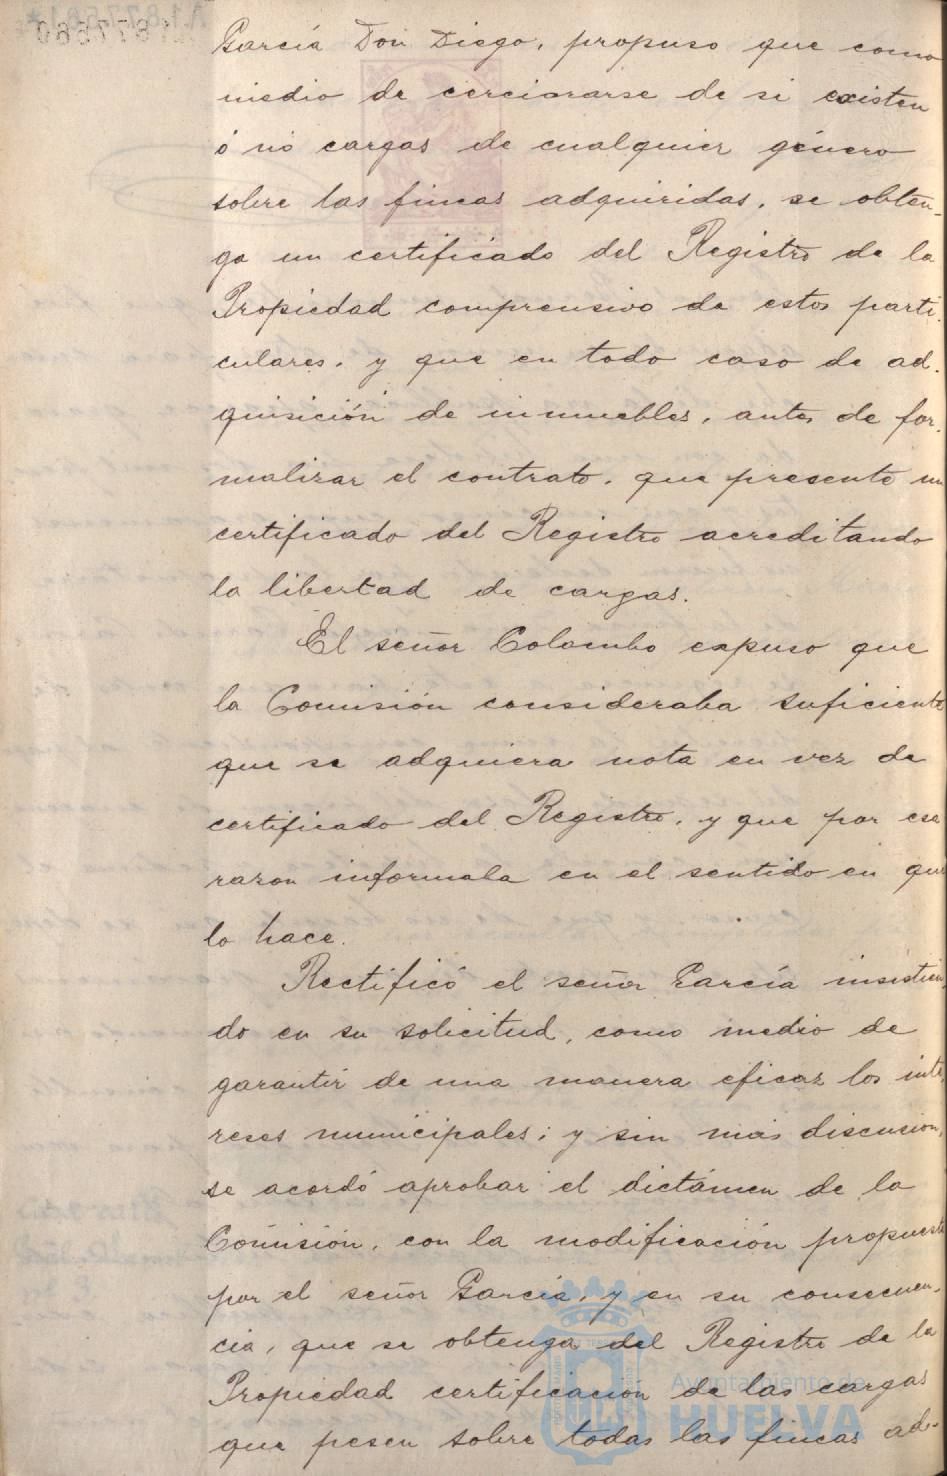 García Don Diego, propuso que como
medio de cerciorarse de si existen
ó no cargas de cualquier género
sobre las fincas adquiridas, se obten-
ga un certificado del Registro de la
Propiedad comprensivo de estos parti-
culares, y que en todo caso de ad-
quisición de inmuebles, antes de for-
malizar el contrato, que presente un
certificado del Registro acreditando
la libertad de cargas.
El señor Colombo expuso que
la Comisión consideraba suficiente
que se adquiera nota en vez de
certificado del Registro, y que por esa
razon informala en el sentido en que
lo hace.
Rectificó el señor García insistien-
do en su solicitud, como medio de
garantir de una manera eficaz los inte
reses municipales; y sin más discusión,
se acordó aprobar el dictámen de la
Comisión, con la modificación propuesta
por el señor García, y en su consecuen-
cia, que se obtenga del Registro de la
Propiedad certificación de las cargas
que pesen sobre todas las fincas ad-
Ayuntamiento de
HUELVA